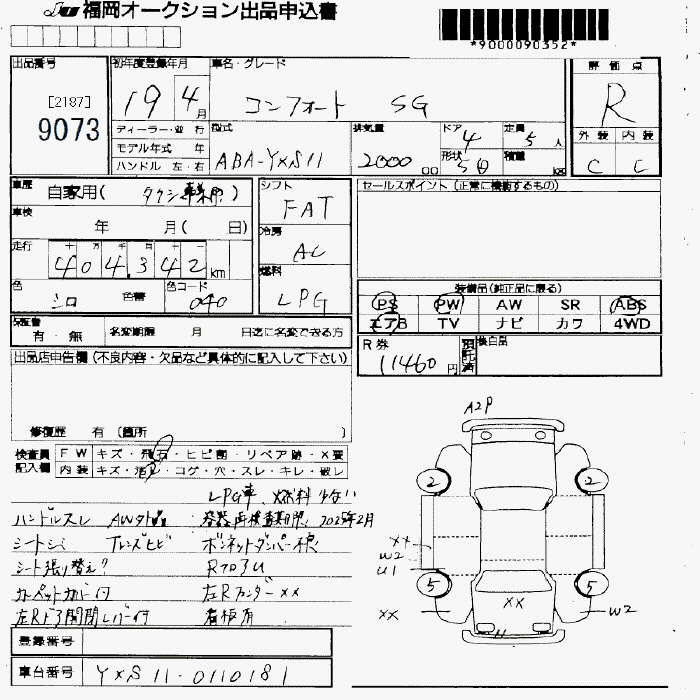 福岡オークション出品申込書
*9000090352*
出品番号 初年度登録年月 車名・グレード 評価点
[2187]
9073
19 4月 コンフォート SG R
ディーラー・並行 型式 排気量 ドア 4 定員 5人 外装 内装
モデル年式 年
ハンドル 左・右 ABA-YXS11 2000 cc 形状 積量 kg C C
車歴 自家用( ) シフト セールスポイント(正常に機能するもの)
FAT
車検 年 月( 日)
冷房 AC
走行 十 万 千 百 十
404,342 km
燃料 LPG
色 シロ 色替 色コード 040
装備品(純正品に限る)
PS PW AW SR ABS
エアB TV ナビ カワ 4WD
保証書 有・無 名変期限 月 日迄に名変できる方
R券 11460円 預託済 後日品
出品店申告欄(不良内容・欠品など具体的に記入して下さい)
修復歴 有 (箇所 )
検査員記入欄 FW キズ・飛石・ヒビ割・リペア跡・X要
内装 キズ・汚れ・コゲ・穴・スレ・キレ・破レ
LPG車、燃料少ない
ハンドルスレ 容器再検査期限、2025年2月
シートシミ Tレンズヒビ ボンネットダンパー
シート張り替え?
カーペットカバー付 左RフェンダーXX
左Rドア開閉レバー付 看板有
登録番号
車台番号 YXS11-0110181
A2P
2 2
XX
W2
U1
5 5
XX XX W2